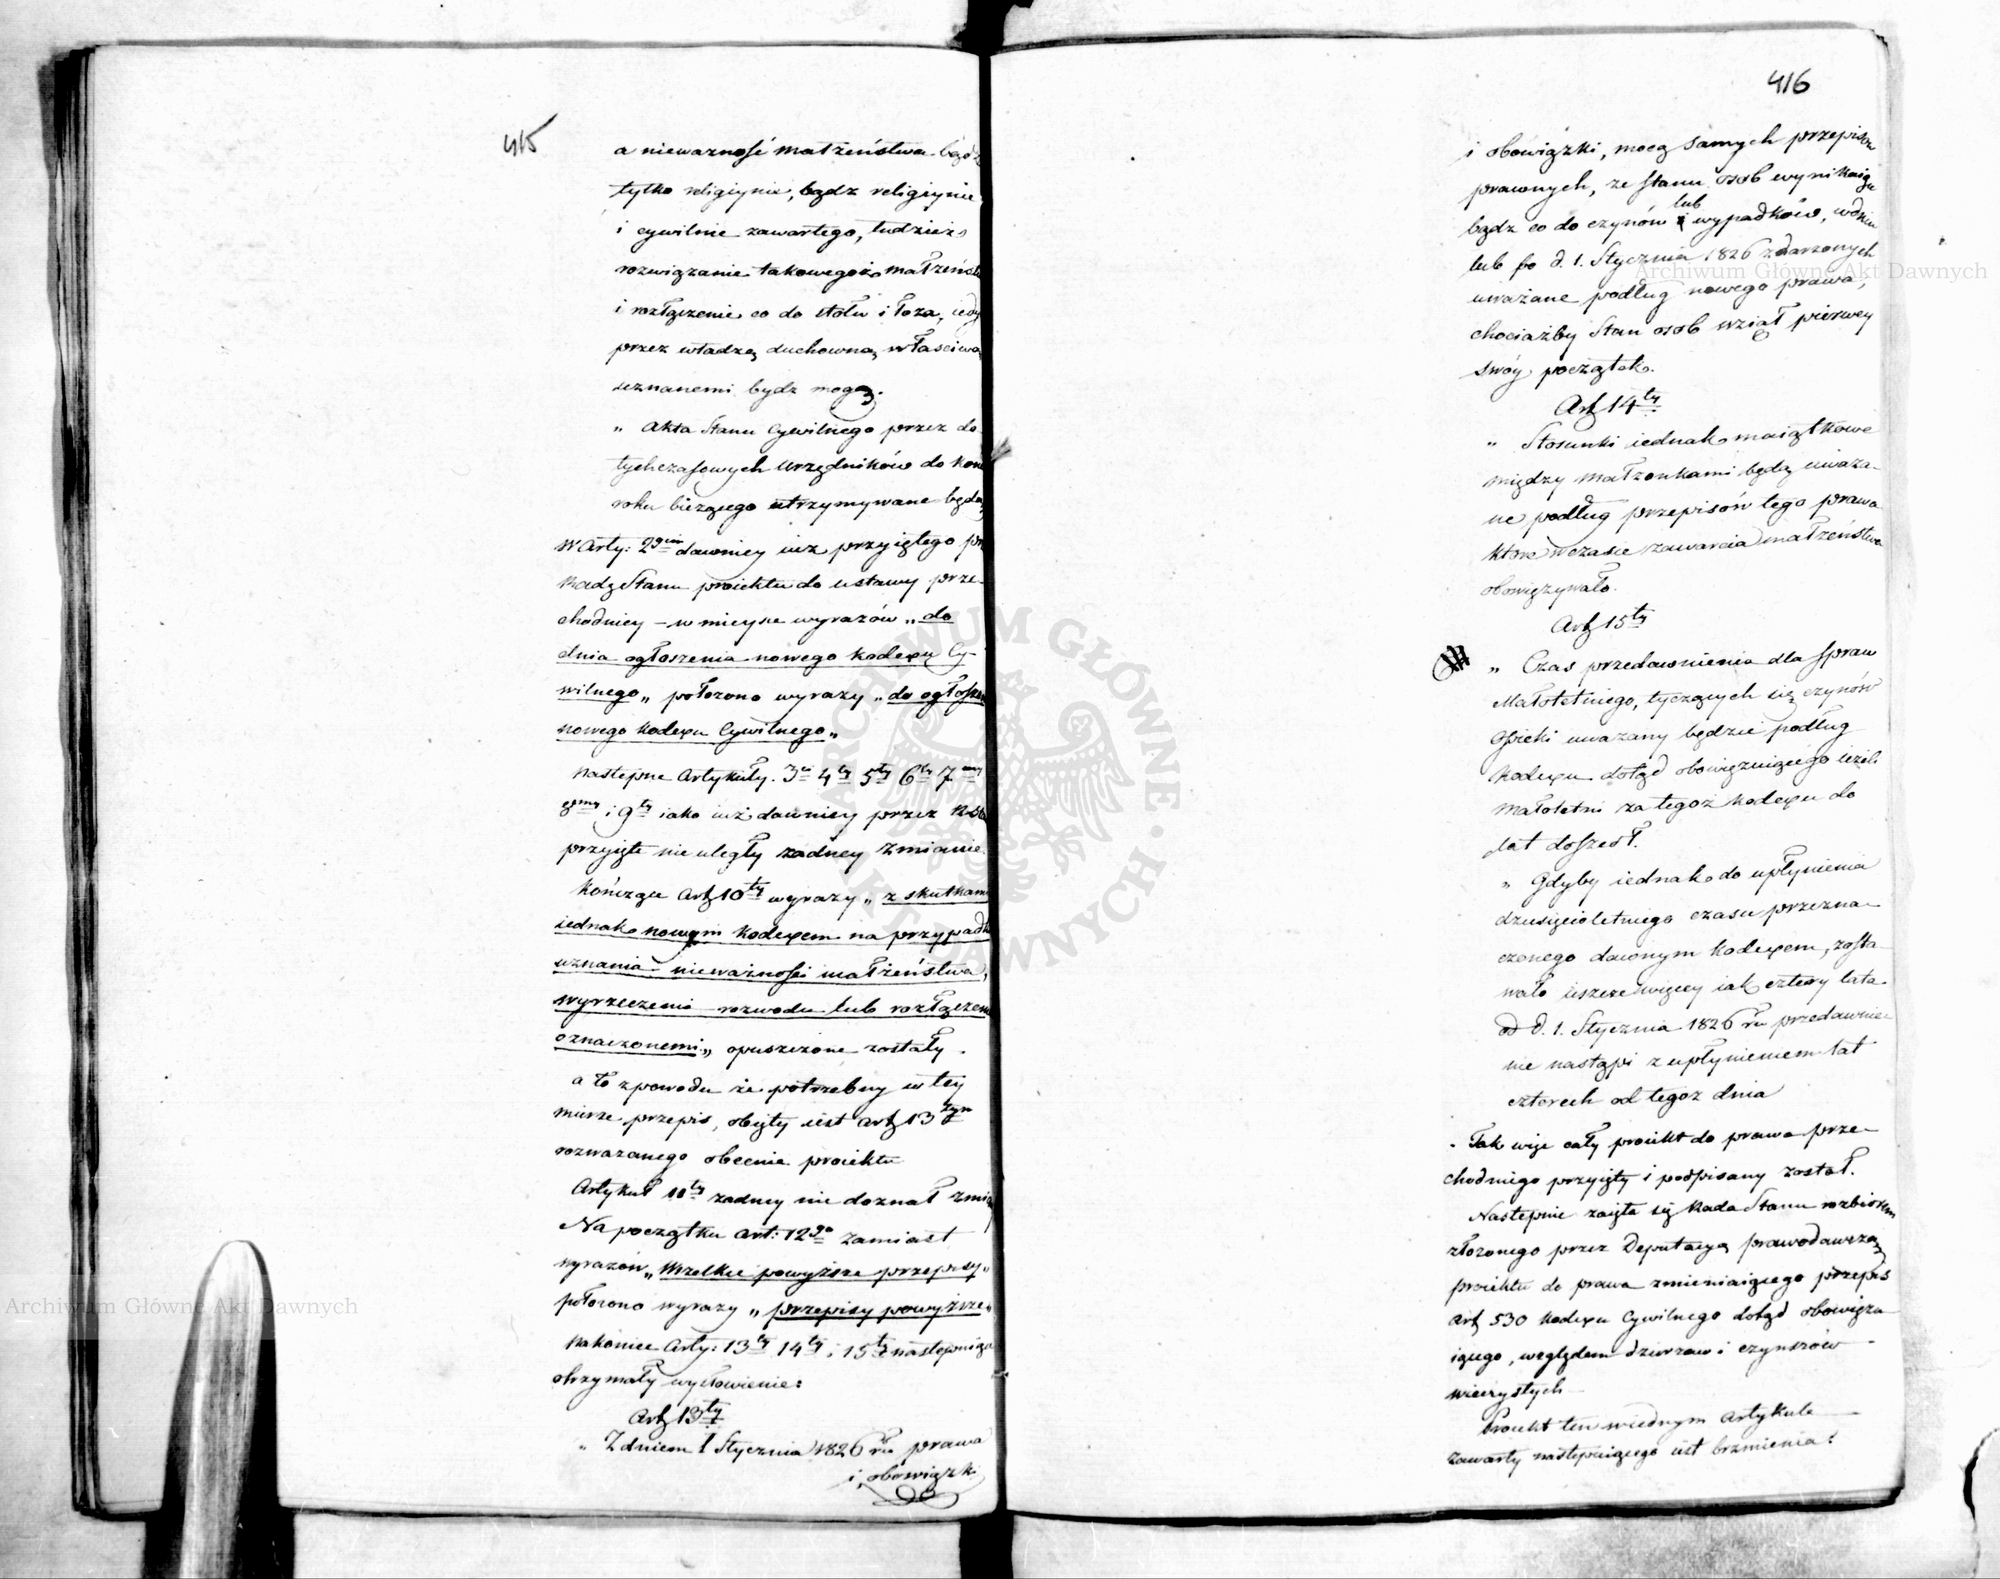 415
a nieważność małżeństwa bądź
tylko religiynie, bądz religiynie
i cywilnie zawartego, tudzież
rozwiązanie takowegoż małżeńst
i rozłączenie co do stołu i łoża, iedy
przez władzę duchowną właściwą
uznanemi bydz mogą.
„ Akta Stanu Cywilnego przez do
tychczasowych Urzędników do koń
roku bieżącego utrzymywane będą,
W Arty: 2gim dawniey iuż przyiętego prz
Radę Stanu proiektu do ustawy prze-
chodniey – w mieysce wyrazów „do
dnia ogłoszenia nowego Kodexu Cy-
wilnego„ położono wyrazy „do ogłosze
nowego Kodexu Cywilnego„
Następne Artykuły. 3ci 4ty 5ty 6ty 7my
8my i 9ty iako iuż dawniey przez Radę
przyięte nie uległy żadney zmianie.
Kończące Art 10ty wyrazy „z skutkami
iednak nowym Kodexem na przypadk
uznania nieważności małżeństwa,
wyrzeczenia rozwodu lub rozłączeni
oznaczonemi„ opuszczone zostały.
a to z powodu że potrzebny w tey
mierze przepis, obięty iest Art 13tym
rozważanego obecnie proiektu
Artykuł 11ty żadney nie doznał zmia
Na początku Art: 12go zamiast
wyrazów „Wszelkie powyższe przepisy„
położono wyrazy „przepisy powyższe„
Nakoniec Arty: 13ty 14ty i 15ty następuiące
otrzymały wysłowienie:
Art 13ty
„ Z dniem 1 Stycznia 1826 ru prawa
i obowiązki
416
i obowiązki, mocą samych przepisów
prawnych, ze stanu osob wynikaiące
bądz co do czynów lub wypadków, w dniu
lub po d. 1. Stycznia 1826 zdarzonych
uważane podług nowego prawa,
chociażby Stan osob wziął pierwey
swóy początek.
Art 14ty
„ Stosunki iednak maiątkowe
między małżonkami będą uważa-
ne podług przepisów tego prawa
które w czasie zawarcia małżeństwa
obowiązywało.
Art 15ty
„ Czas przedawnienia dla spraw
Małoletniego, tyczących się czynów
Opieki uważany będzie podług
Kodexu dotąd obowiązuiącego ieżeli
Małoletni za tegoż Kodexu do
lat doszedł.
„ Gdyby iednak do upłynienia
dziesięcioletniego czasu przezna-
czonego dawnym Kodexem, zosta-
wało ieszcze więcey iak cztery lata
od d. 1. Stycznia 1826 ru przedawnie-
nie nastąpi z upłynieniem lat
czterech od tegoż dnia
Tak więc cały proiekt do prawa prze-
chodniego przyięty i podpisany został.
Następnie zaięła się Rada Stanu rozbiorem
złożonego przez Deputacyą prawodawczą
proiektu do prawa zmieniaiącego przepis
Art 530 Kodexu Cywilnego dotąd obowiązu
iącego, względem dzierżaw i czynszów
wieczystych
Proiekt ten w iednym Artykule
zawarty następuiącego iest brzmienia:
Archiwum Główne Akt Dawnych
Archiwum Główne Akt Dawnych
ARCHIWUM GŁÓWNE AKT DAWNYCH